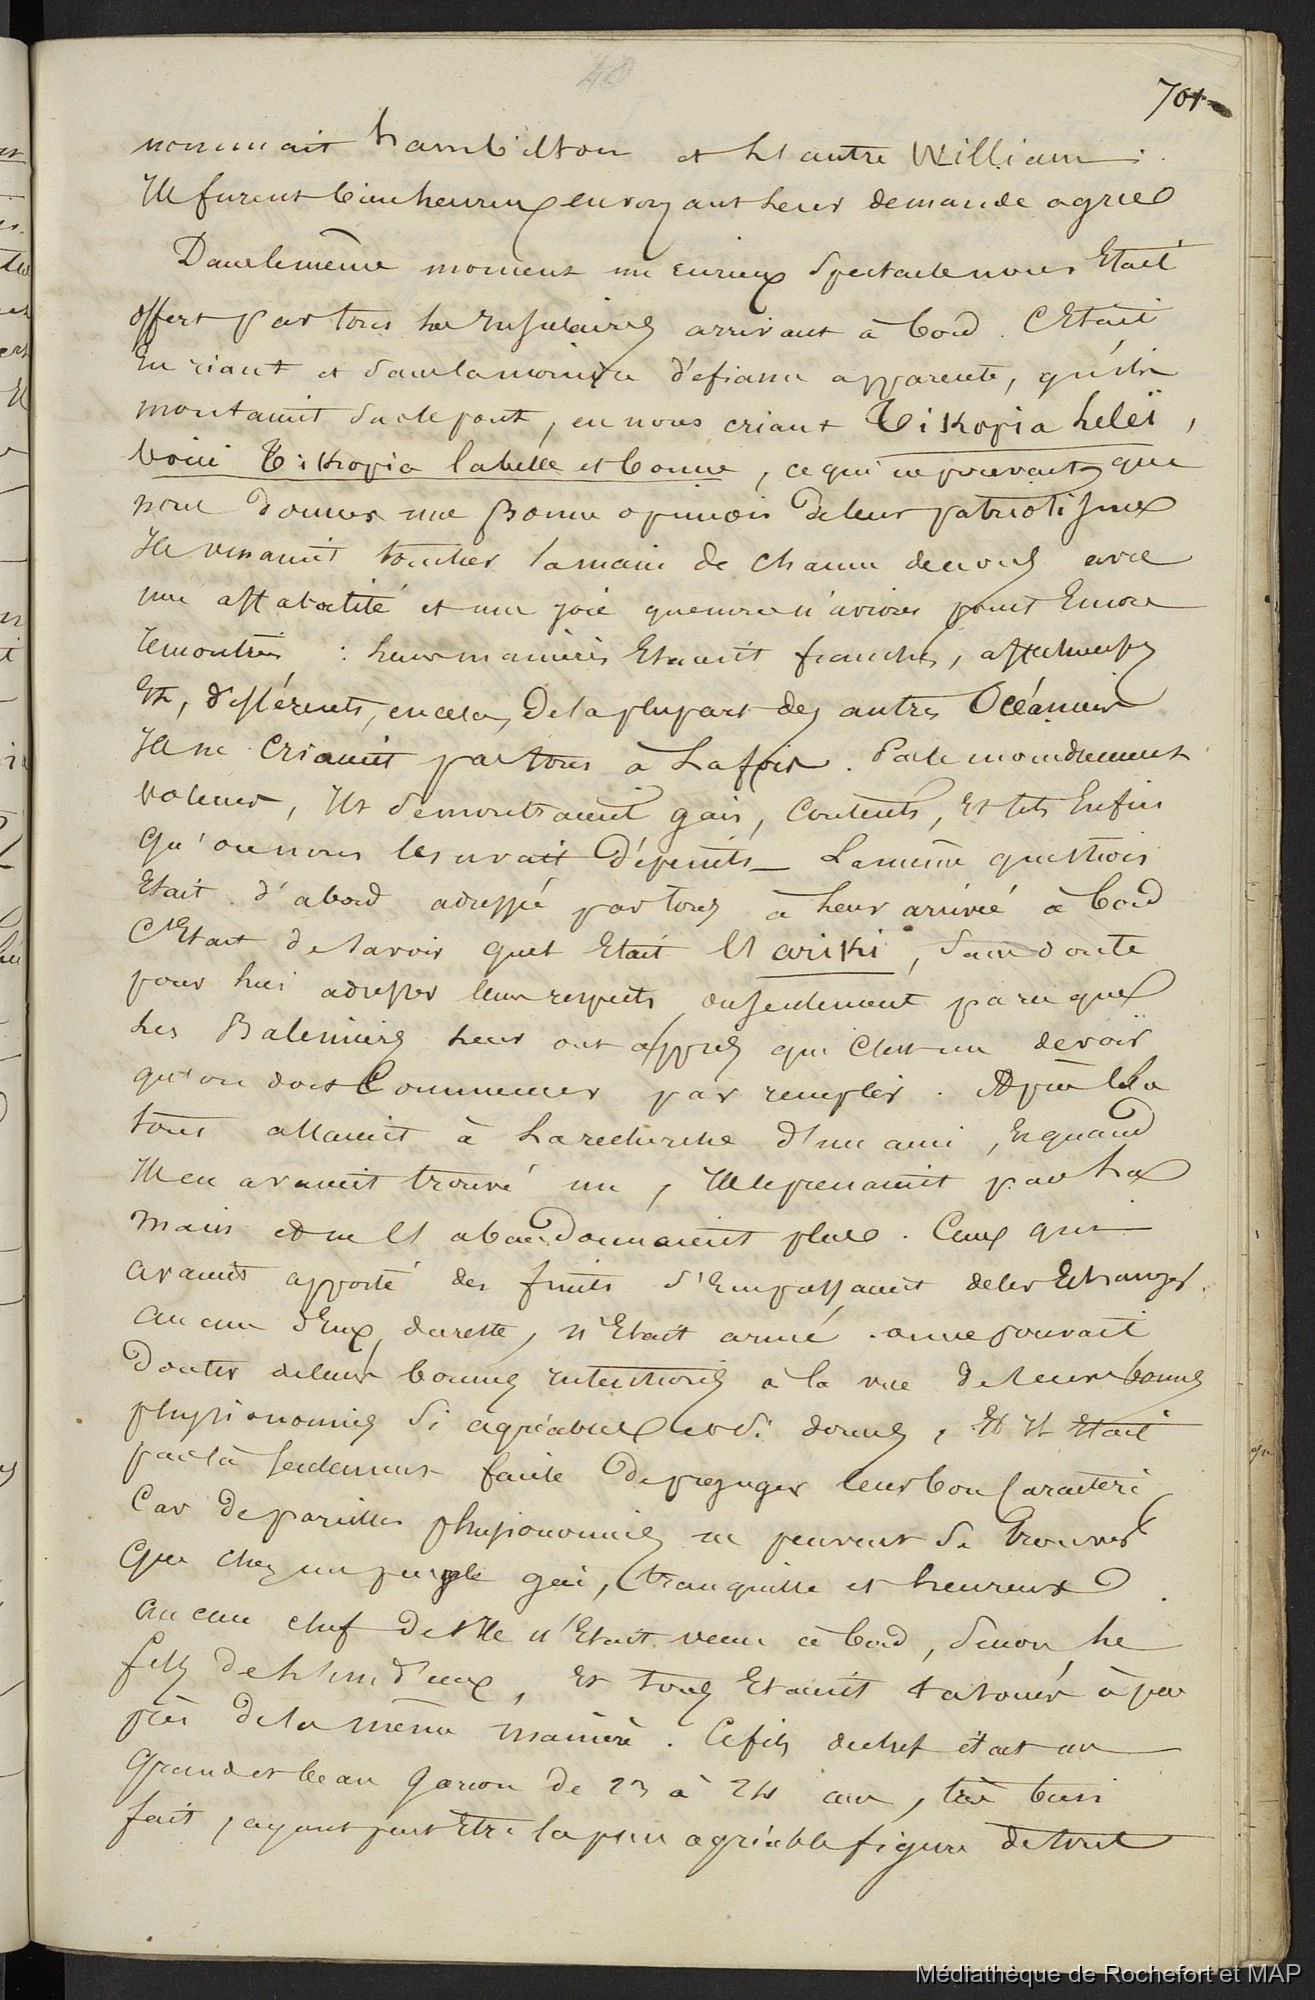 40
701
nommait hambilton et l'autre William.
Ils furent bien heureux en voyant leur demande agrée
Dans le même moment un curieux spectacle nous Etait
offert par tous les Insulaires arrivant à bord. C'Etait
En riant et sans la moindre défiance apparente, qu'ils
montaient sur le pont, en nous criant Tikopia heleï,
voici Tikopia la belle et bonne, ce qui ne pouvait que
nous donner une bonne opinion de leur patriotisme
Ils venaient toucher la main de chacun de nous avec
une affabilité et une joie que nous n'avions point Encore
remontrés : leurs manières Etaient franches, affectueuses
Et, différents, en cela, de la plupart des autres Océaniens
Ils ne criaient pas tous à la fois. Pas le moindrement
voleurs, Ils se montraient gais, contents, Et tels Enfin
qu'on nous les avait dépeints _ La même question
Etait d'abord adressée par tous à leur arrivée à bord
C'Etait de savoir quel Etait l'ariki, sans doute
pour lui adresser leurs respects ou seulement parce que
les Baleiniers leur ont appris que c'est un devoir
qu'on doit Commencer par remplir. Après cela
tous allaient à la recherche d'un ami, Et quand
Ils en avaient trouvé un, Ils le prenaient par la
main et ne l'abandonnaient plus. Ceux qui
avaient apporté des fruits s'Empressaient de les Echanger.
Aucun d'Eux, du reste, n'Etait armé. on ne pouvait
Douter de leurs bonnes intentions à la vue de leurs bonnes
physionomies si agréables et si douces, Et Il Etait
par là seulement facile de préjuger leur bon Caractère,
Car de pareilles physionomies ne peuvent se trouver
Que chez un peuple gai, tranquille et heureux.
Aucun chef de l'Ile n'Etait venu à bord, sinon le
fils de l'un d'eux, Et tous Etaient tatoués à peu
près de la même manière. Ce fils de chef était un
Grand et beau garçon de 23 à 24 ans, très bien
fait, ayant peut Etre la plus agréable figure de tous
Médiathèque de Rochefort et MAP